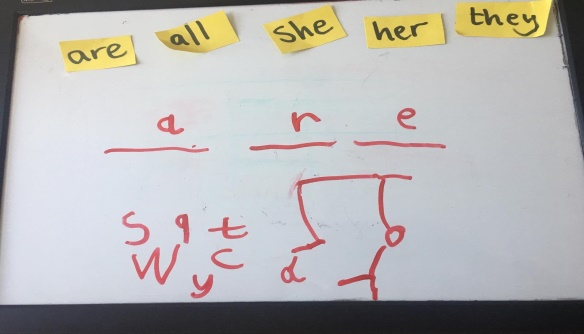 are all she her they
a r e
s q t
w y c d